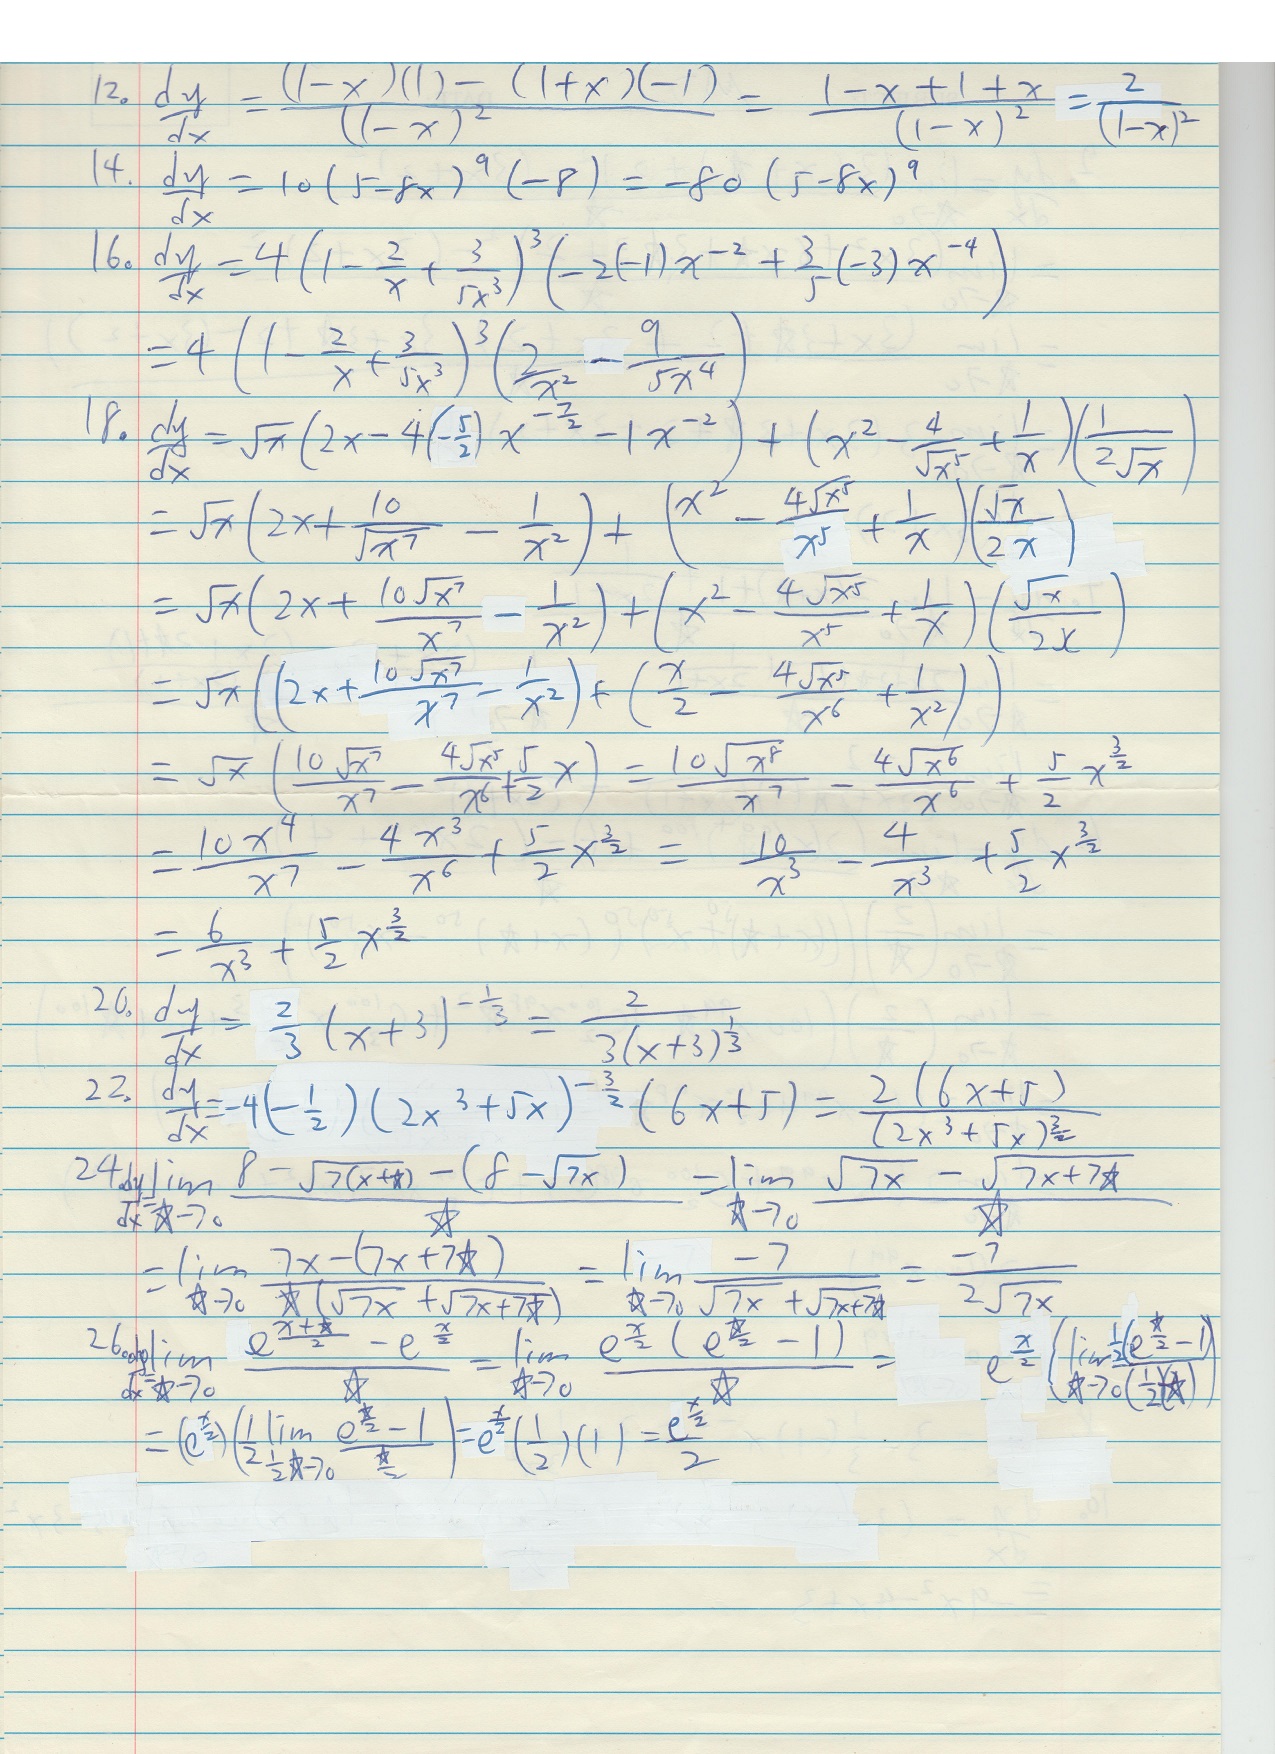 12. dy/dx = ((1-x)(1) - (1+x)(-1))/((1-x)^2) = (1-x+1+x)/((1-x)^2) = 2/(1-x)^2
14. dy/dx = 10(5-8x)^9(-8) = -80(5-8x)^9
16. dy/dx = 4(1 - 2/x + 3/(5x^3))^3(-2(-1)x^(-2) + 3/5(-3)x^(-4))
= 4(1 - 2/x + 3/(5x^3))^3(2/x^2 - 9/(5x^4))
18. dy/dx = √x(2x - 4(-5/2)x^(-7/2) - 1x^(-2)) + (x^2 - 4/√x^5 + 1/x)(1/(2√x))
= √x(2x + 10/√x^7 - 1/x^2) + (x^2 - 4√x^5/x^5 + 1/x)(√x/(2x))
= √x(2x + 10√x^7/x^7 - 1/x^2) + (x^2 - 4√x^5/x^5 + 1/x)(√x/(2x))
= √x((2x + 10√x^7/x^7 - 1/x^2) + (x/2 - 4√x^5/x^6 + 1/x^2))
= √x(10√x^7/x^7 - 4√x^5/x^6 + 5/2 x) = 10√x^8/x^7 - 4√x^6/x^6 + 5/2 x^(3/2)
= 10x^4/x^7 - 4x^3/x^6 + 5/2 x^(3/2) = 10/x^3 - 4/x^3 + 5/2 x^(3/2)
= 6/x^3 + 5/2 x^(3/2)
20. dy/dx = 2/3 (x+3)^(-1/3) = 2/(3(x+3)^(1/3))
22. dy/dx = -4(-1/2)(2x^3+5x)^(-3/2)(6x+5) = 2(6x+5)/(2x^3+5x)^(3/2)
24. dy/dx = lim ☆→0 (8 - √7(x+☆) - (8 - √7x))/☆ = lim ☆→0 (√7x - √7x+7☆)/☆
= lim ☆→0 (7x - (7x+7☆))/(☆(√7x + √7x+7☆)) = lim ☆→0 -7/(√7x + √7x+7☆) = -7/(2√7x)
26. dy/dx = lim ☆→0 (e^((x+☆)/2) - e^(x/2))/☆ = lim ☆→0 e^(x/2)(e^(☆/2) - 1)/☆ = e^(x/2)(lim ☆→0 1/2(e^(☆/2) - 1)/((1/2)(☆)))
= (e^(x/2))(1/2 lim 1/2☆→0 (e^(☆/2) - 1)/(☆/2)) = e^(x/2)(1/2)(1) = e^(x/2)/2